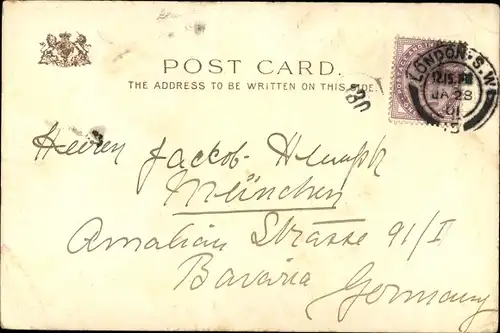 POST CARD.
THE ADDRESS TO BE WRITTEN ON THIS SIDE.
LONDON. S. W.
12.15. PM
JA 28
01
Herrn Jackob
München
Amalien Strasse 91/I
Bavaria Germany